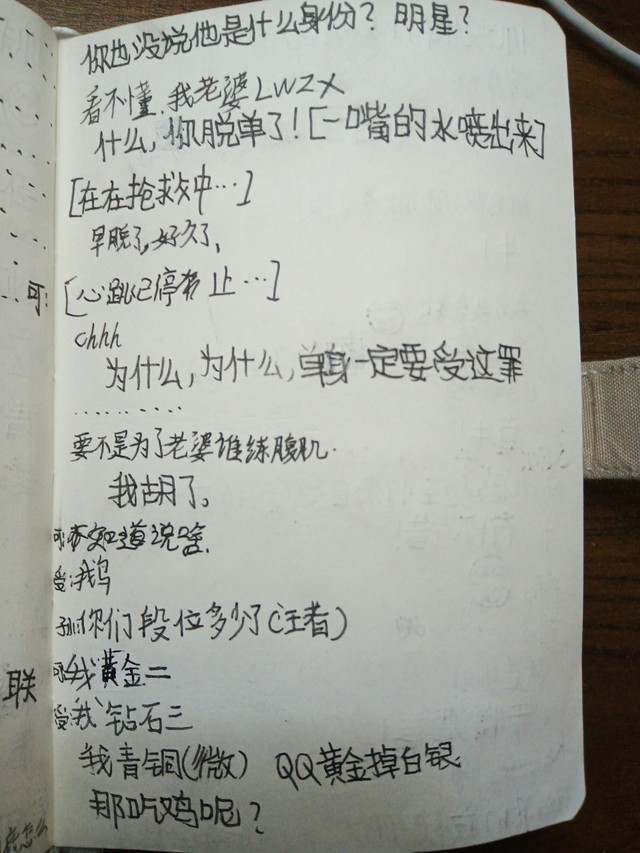 你也没说他是什么身份？明星？
看不懂.我老婆LWZX
什么,你脱单了！[一口嘴的水喷出来]
[在在抢救中…]
早脱了,好久了,
[心跳已停 止…]
可:
chhh
为什么,为什么,单身一定要受这罪
..........
要不是为了老婆谁练腹肌.
我胡了。
可: 不知道说啥.
爱:我鸟
你们段位多少了(王者)
可:我黄金二
联
爱:我 钻石三
我青铜(微) QQ黄金掉白银
那吃鸡呢?
怎么